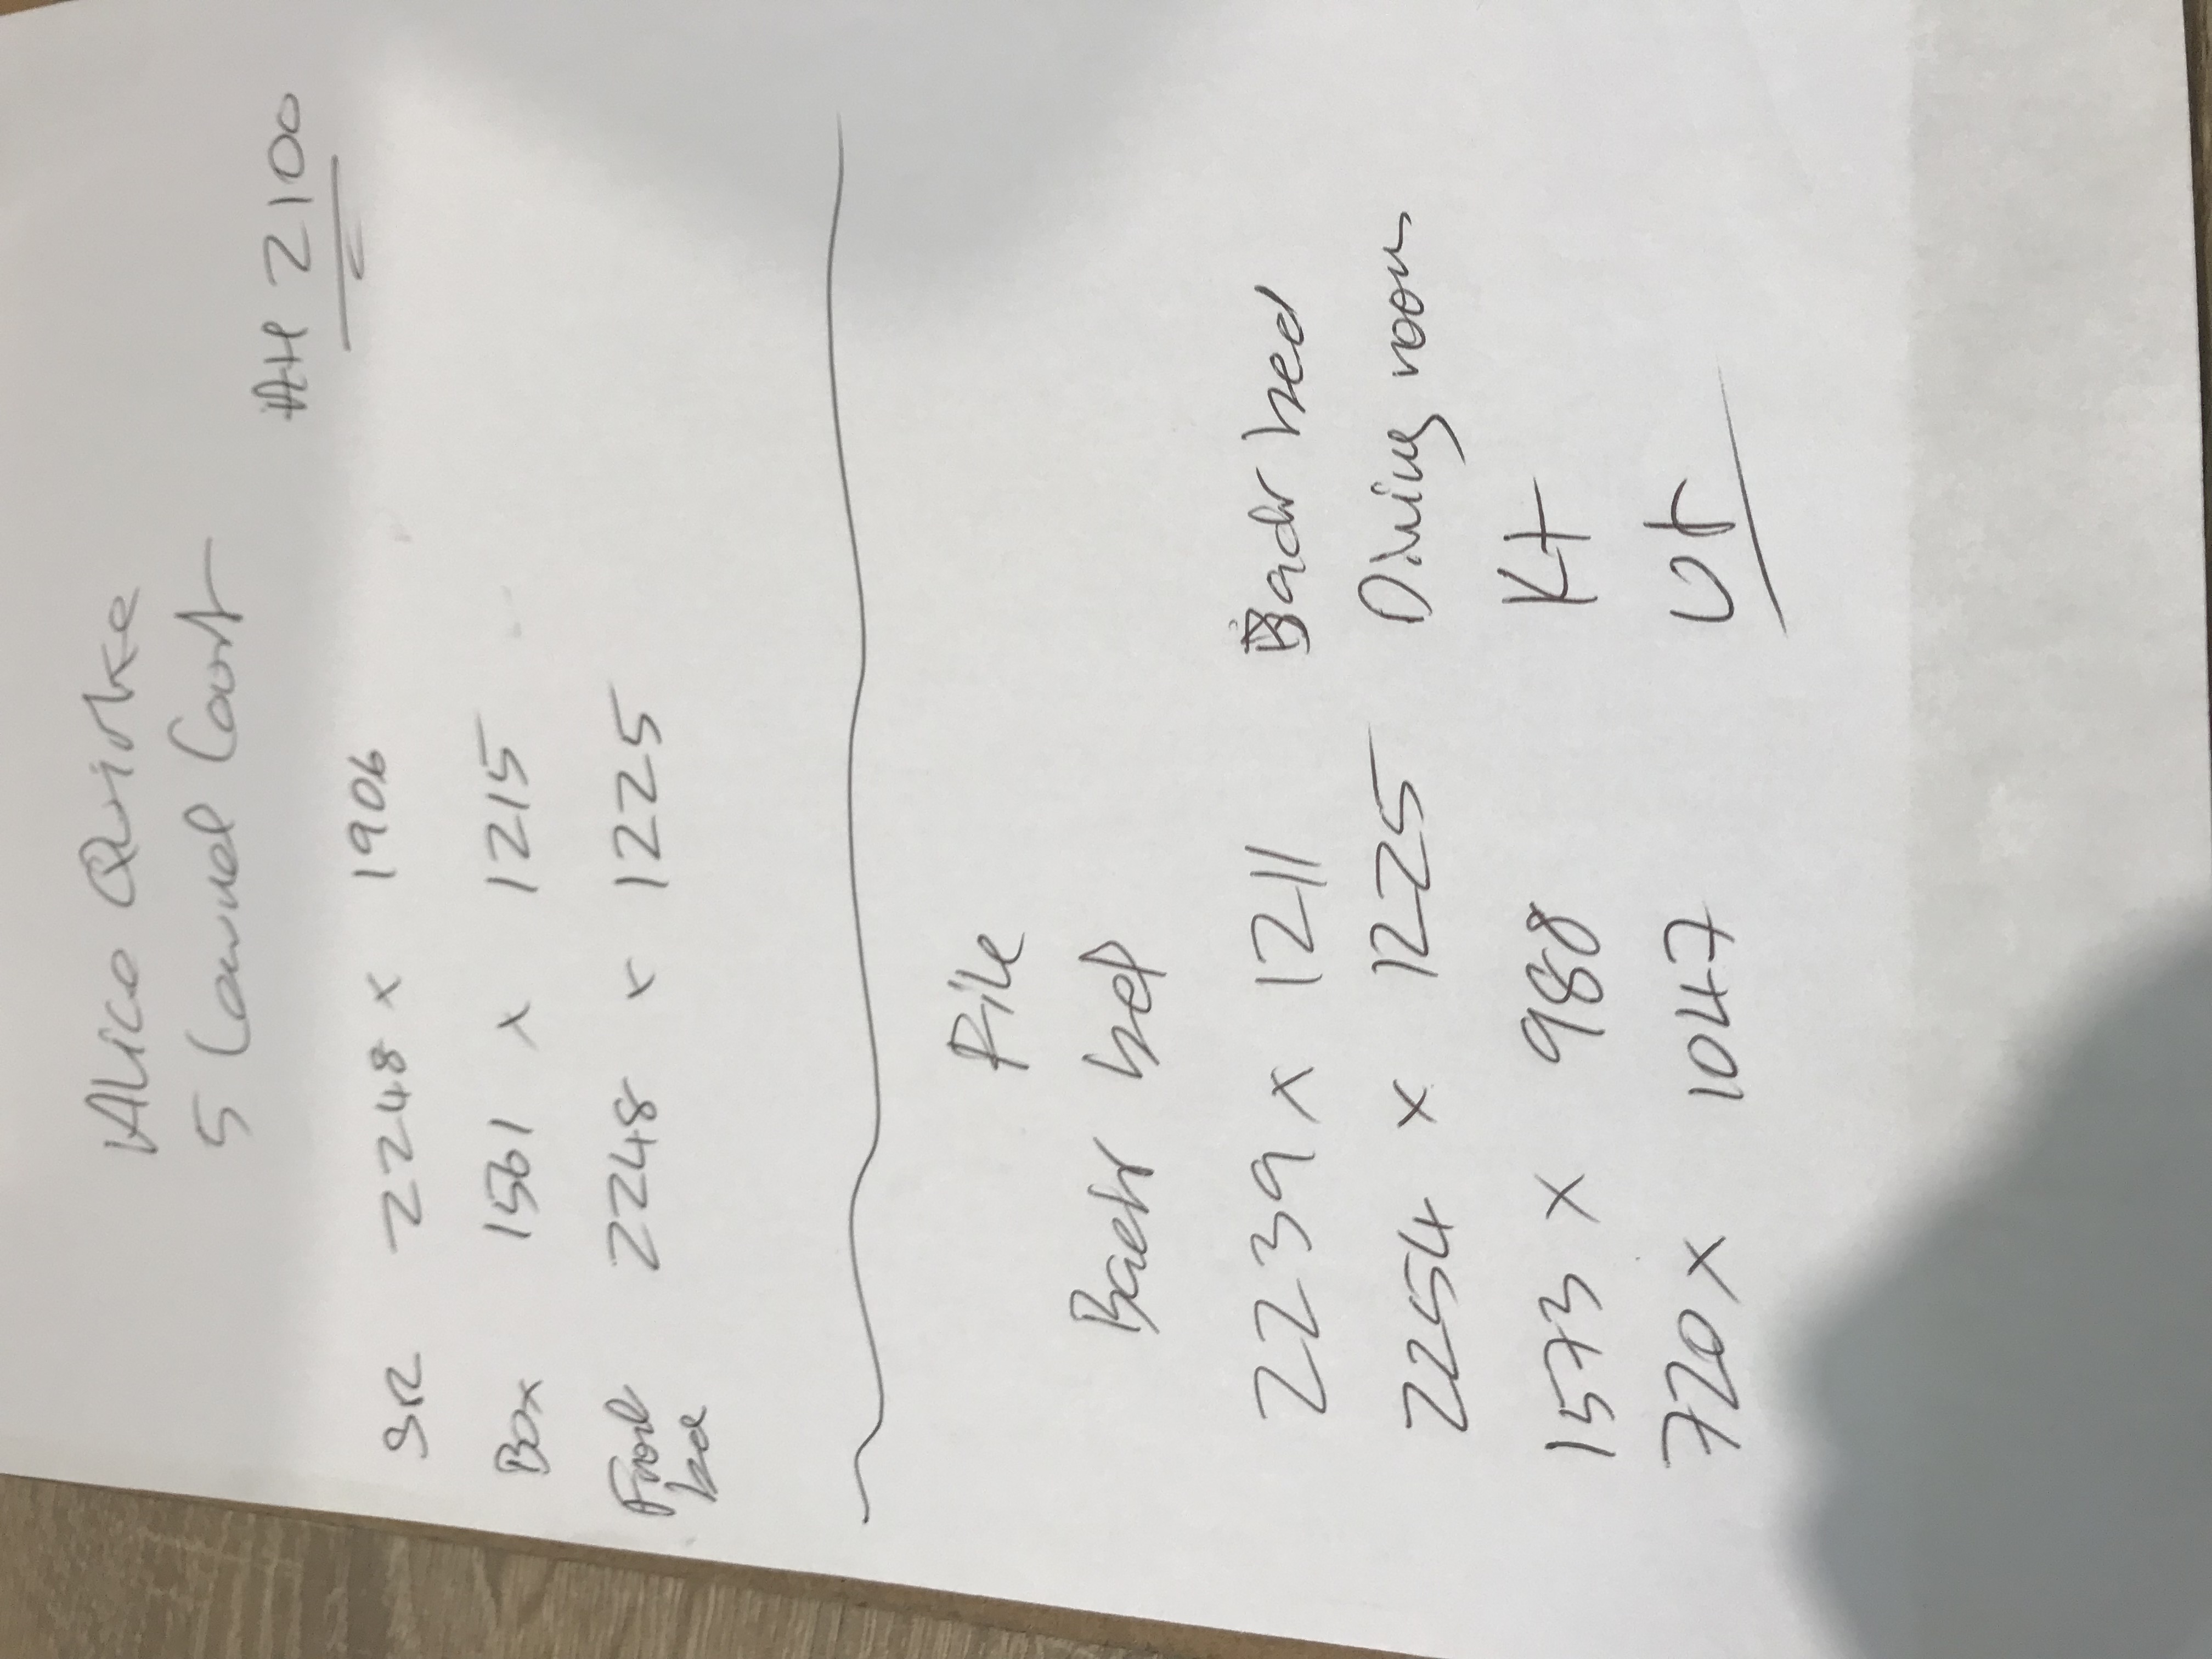 Alice Quirke
5 Laurel Court
AH 2100
SR 2248 x 1906
Box 1561 x 1215
Front bed 2248 x 1225
File
Back bed
2239 x 1211 Back bed
2254 x 1225 Dining room
1573 x 988 Kit
720 x 1047 Ut